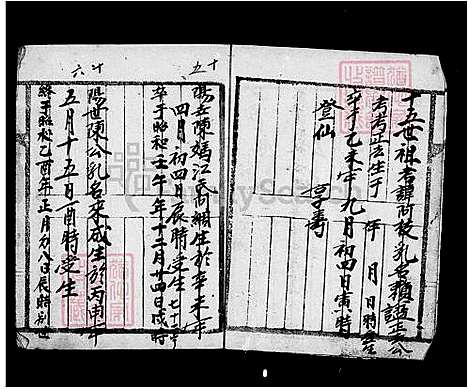 十五世祖考諱阿枝乳名類謚正公
考生于 年 月 日時
卒于乙未年九月初四日寅時
登仙 享壽
十五
陽世陳媽江氏阿綢生於辛未年
四月初四日辰時受生 七十二
卒于昭和壬午年十二月廿四日戌時
十六
陽世陳公乳名来成生於丙申年
五月十五日酉時受生
終于昭和乙酉年正月初八日辰時別世